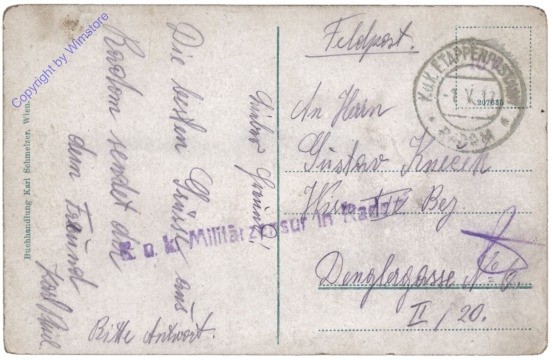 Copyright by Wimstore
Buchhandlung Karl Schmelzer, Wien.
Lieber Freund!
Die besten Grüsse aus
Radom sendet dir
dein Freund
Karl
Bitte Antwort.
Feldpost.
K.u.K. ETAPPENPOSTAMT
V. 17
RADOM
207635
K. u. k. Militärzensur in Radom
An Herrn
Gustav
Wien XV Bez
Denglergasse No
II/20.